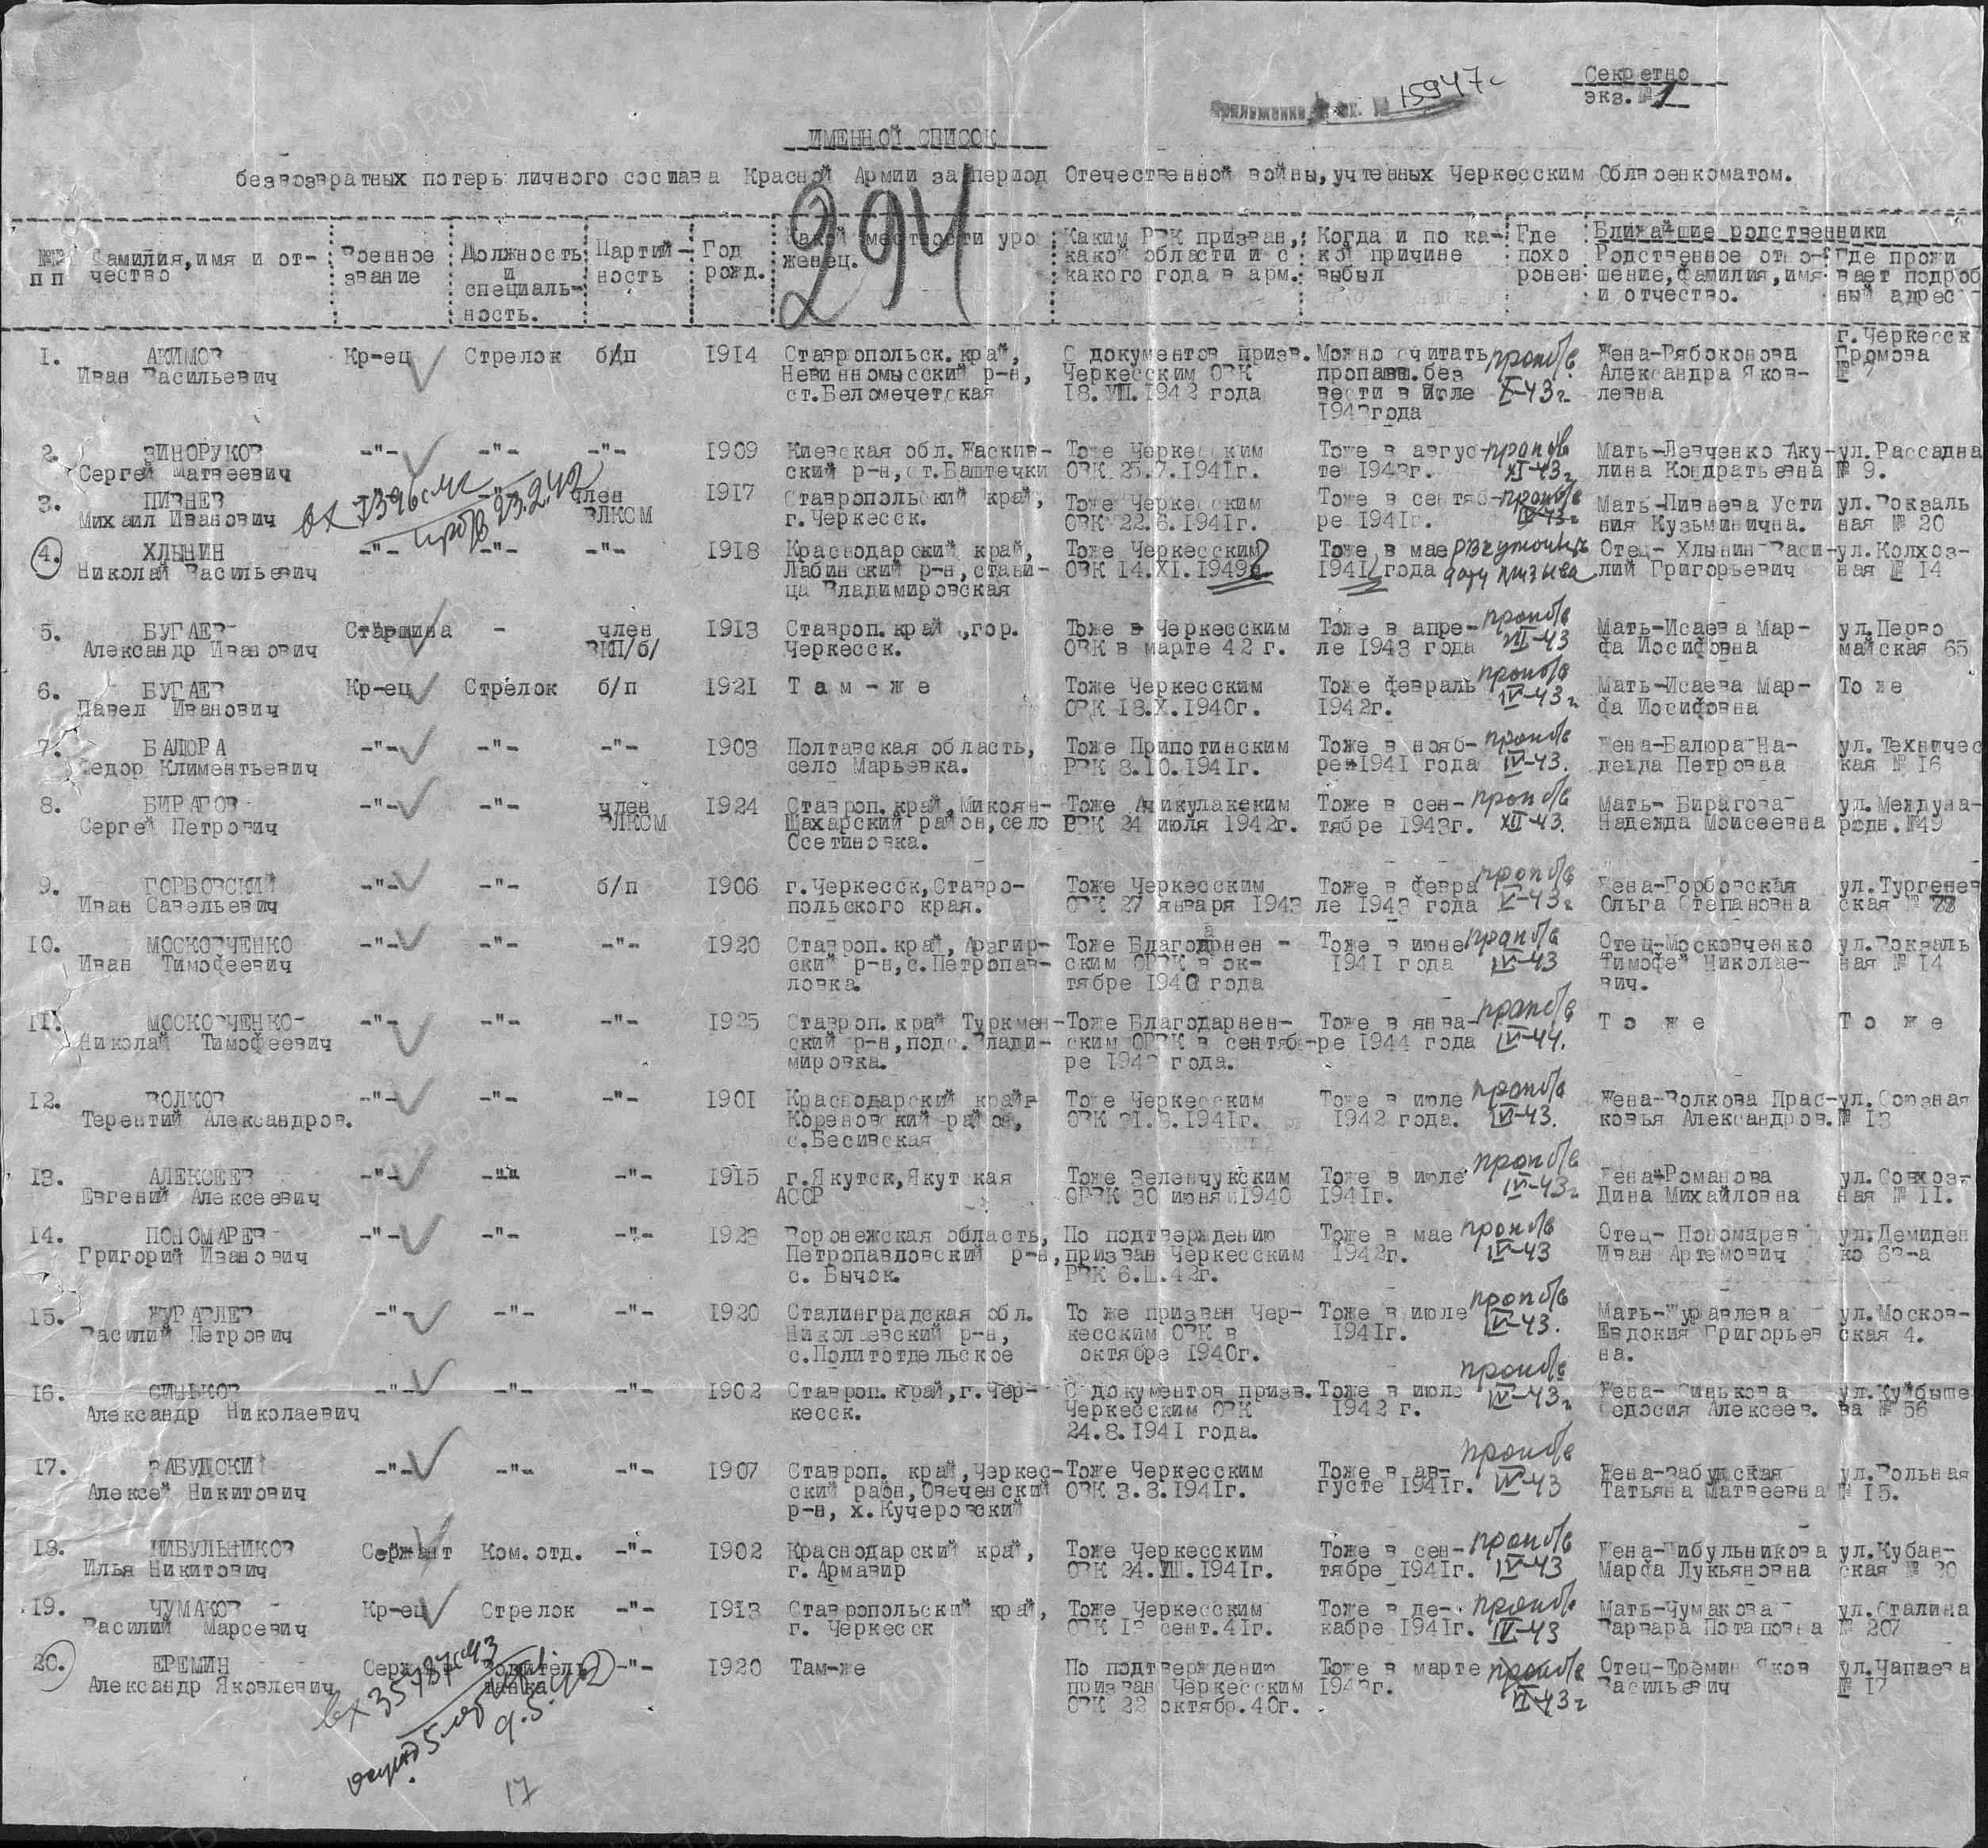 Секретно
экз. № 1
15947с
ИМЕННОЙ СПИСОК
безвозвратных потерь личного состава Красной Армии за период Отечественной войны, учтенных Черкесским Облвоенкоматом.
294
№№ пп | Фамилия, имя и от-чество | Военное звание | Должность и специаль-ность. | Партий-ность | Год рожд. | Какой местности уро женец. | Каким РВК призван, какой области и с какого года в арм. | Когда и по ка-кой причине выбыл | Где похо ронен | Ближайшие родственники: Родственное отно-шение, фамилия, имя и отчество. | Где прожи вает подроб ный адрес
1. АКИМОВ Иван Васильевич | Кр-ец | Стрелок | б/п | 1914 | Ставропольск. край, Невинномысский р-н, ст. Беломечетская | С документов призв. Черкесским ОВК 18.VIII.1942 года | Можно считать пропавш. без вести в июле 1943 года | проп б/в X-43г. | Жена-Рябоконова Александра Яков-левна | г. Черкесск Громова № 7
2. ЗИНОРУКОВ Сергей Матвеевич | -"- | -"- | -"- | 1909 | Киевская обл. Жаскив-ский р-н, ст. Баштечки | Тоже Черкесским ОВК 25.7.1941г. | Тоже в авгус-те 1943г. | проп б/в XI-43г | Мать-Левченко Аку-лина Кондратьевна | ул. Рассадна № 9.
3. ПИВНЕВ Михаил Иванович | -"- | член ВЛКСМ | 1917 | Ставропольский край, г. Черкесск. | Тоже Черкесским ОВК 22.6.1941г. | Тоже в сентяб-ре 1941г. | проп б/в IV-43г | Мать-Пивнева Усти ния Кузьминична. | ул. Вокзаль ная № 20
4. ХЛЫНИН Николай Васильевич | -"- | -"- | -"- | 1918 | Краснодарский край, Лабинский р-н, стани-ца Владимировская | Тоже Черкесским ОВК 14.XI.1949г. | Тоже в мае 1941 года | РВК уточнить дату призыва | Отец- Хлынин Васи-лий Григорьевич | ул. Колхоз-ная № 14
5. БУГАЕВ Александр Иванович | Старшина | - | член ВКП/б/ | 1913 | Ставроп. край, гор. Черкесск. | Тоже в Черкесским ОВК в марте 42 г. | Тоже в апре-ле 1943 года | проп б/в VII-43 | Мать-Исаева Мар-фа Иосифовна | ул. Перво майская 65
6. БУГАЕВ Павел Иванович | Кр-ец | Стрелок | б/п | 1921 | Там-же | Тоже Черкесским ОВК 18.X.1940г. | Тоже февраль 1942г. | проп б/в IV-43г. | Мать-Исаева Мар-фа Иосифовна | То же
7. БАЛЮРА Федор Климентьевич | -"- | -"- | -"- | 1903 | Полтавская область, село Марьевка. | Тоже Припотинским РВК 8.10.1941г. | Тоже в нояб-ре 1941 года | проп б/в IV-43. | Жена-Балюра На-дежда Петровна | ул. Техничес кая № 16
8. БИРАГОВ Сергей Петрович | -"- | -"- | член ВЛКСМ | 1924 | Ставроп. край, Микоян-Шахарский район, село Осетиновка. | Тоже Ачикулакским РВК 24 июля 1942г. | Тоже в сен-тябре 1943г. | проп б/в XII-43. | Мать- Бирагова Надежда Моисеевна | ул. Междуна-родн. №49
9. ГОРБОВСКИЙ Иван Савельевич | -"- | -"- | б/п | 1906 | г. Черкесск, Ставро-польского края. | Тоже Черкесским ОВК 27 января 1943 | Тоже в февра ле 1943 года | проп б/в V-43г | Жена-Горбовская Ольга Степановна | ул. Тургенев ская №
10. МОСКОВЧЕНКО Иван Тимофеевич | -"- | -"- | -"- | 1920 | Ставроп. край, Арзгир-ский р-н, с. Петропав-ловка. | Тоже Благодарнен-ским ОРВК в ок-тябре 1940 года | Тоже в июне 1941 года | проп б/в IV-43 | Отец-Московченко Тимофей Николае-вич. | ул. Вокзаль ная № 14
11. МОСКОВЧЕНКО Николай Тимофеевич | -"- | -"- | -"- | 1925 | Ставроп. край Туркмен-ский р-н, подс. Влади-мировка. | Тоже Благодарнен-ским ОРВК в сентяб-ре 1943 года. | Тоже в янва-ре 1944 года | проп б/в IV-44. | Тоже | Тоже
12. ВОЛКОВ Терентий Александров. | -"- | -"- | -"- | 1901 | Краснодарский край Кореновский район, с. Бесивская | Тоже Черкесским ОВК 21.8.1941г. | Тоже в июле 1942 года. | проп б/в IV-43. | Жена-Волкова Прас-ковья Александров. | ул. Союзная № 13
13. АЛЕКСЕЕВ Евгений Алексеевич | -"- | -"- | -"- | 1915 | г. Якутск, Якутская АССР | Тоже Зеленчукским ОРВК 30 июня 1940 | Тоже в июле 1941г. | проп б/в IV-43г | Жена-Романова Дина Михайловна | ул. Совхоз-ная № 11.
14. ПОНОМАРЕВ Григорий Иванович | -"- | -"- | -"- | 1923 | Воронежская область, Петропавловский р-н, с. Бычок. | По подтверждению призван Черкесским РВК 6.II.42г. | Тоже в мае 1942г. | проп б/в IV-43 | Отец- Пономарев Иван Артемович | ул. Демиден ко 63-а
15. ЖУРАВЛЕВ Василий Петрович | -"- | -"- | -"- | 1920 | Сталинградская обл. Николаевский р-н, с. Политотдельское | То же призван Чер-кесским ОВК в октябре 1940г. | Тоже в июле 1941г. | проп б/в IV-43. | Мать-Журавлева Евдокия Григорьев на. | ул. Москов-ская 4.
16. СИНЬКОВ Александр Николаевич | -"- | -"- | -"- | 1902 | Ставроп. край, г. Чер-кесск. | С документов призв. Черкесским ОВК 24.8.1941 года. | Тоже в июле 1942 г. | проп б/в IV-43г | Жена- Синькова Федосия Алексеев. | ул. Куйбыше ва № 56
17. ЗАБУДСКИЙ Алексей Никитович | -"- | -"- | -"- | 1907 | Ставроп. край, Черкес-ский район, Овеченский р-н, х. Кучеровский | Тоже Черкесским ОВК 3.8.1941г. | Тоже в ав-густе 1941г. | проп б/в IV-43 | Жена-Забудская Татьяна Матвеевна | ул. Вольная № 15.
18. ЦИБУЛЬНИКОВ Илья Никитович | Сержант | Ком. отд. | -"- | 1902 | Краснодарский край, г. Армавир | Тоже Черкесским ОВК 24.VIII.1941г. | Тоже в сен-тябре 1941г. | проп б/в IV-43 | Жена-Цибульникова Марфа Лукьяновна | ул. Кубан-ская № 20
19. ЧУМАКОВ Василий Марсевич | Кр-ец | Стрелок | -"- | 1913 | Ставропольский край, г. Черкесск | Тоже Черкесским ОВК 13 сент. 41г. | Тоже в де-кабре 1941г. | проп б/в IV-43 | Мать-Чумакова Варвара Потаповна | ул. Сталина № 207
20. ЕРЕМИН Александр Яковлевич | Сержант | Водитель танка | -"- | 1920 | Там-же | По подтверждению призван Черкесским ОВК 22 октябр. 40г. | Тоже в марте 1943г. | проп б/в VI-43г | Отец-Еремин Яков Васильевич | ул. Чапаева № 17
17